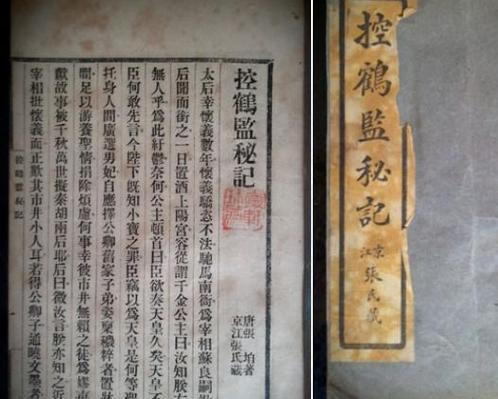 控鶴監秘記
唐張垍著
京江張氏藏
太后幸懷義數年懷義驕恣不法馳馬南衙為宰相蘇良嗣
后聞而銜之一日置酒上陽宮容從謂千金公主曰汝知朕左
無人乎為此紆鬱奈何公主頓首曰臣欲奏天皇久矣天皇不
臣何敢先言今陛下既知小寶之罪臣竊以為天皇是何等聖
托身人間廣選男妃自應擇公卿舊家子弟姿稟穠粹者置牀
間足以游養聖情捐除煩慮何事幸彼市井無賴之徒為嫪
獻故事被千秋萬世擬秦胡兩后耶后曰微汝言朕亦知之近
宰相批懷義面正欺其市井小人耳若得公卿子通曉文墨者
控鶴監秘記
控鶴監秘記
京江
張氏藏